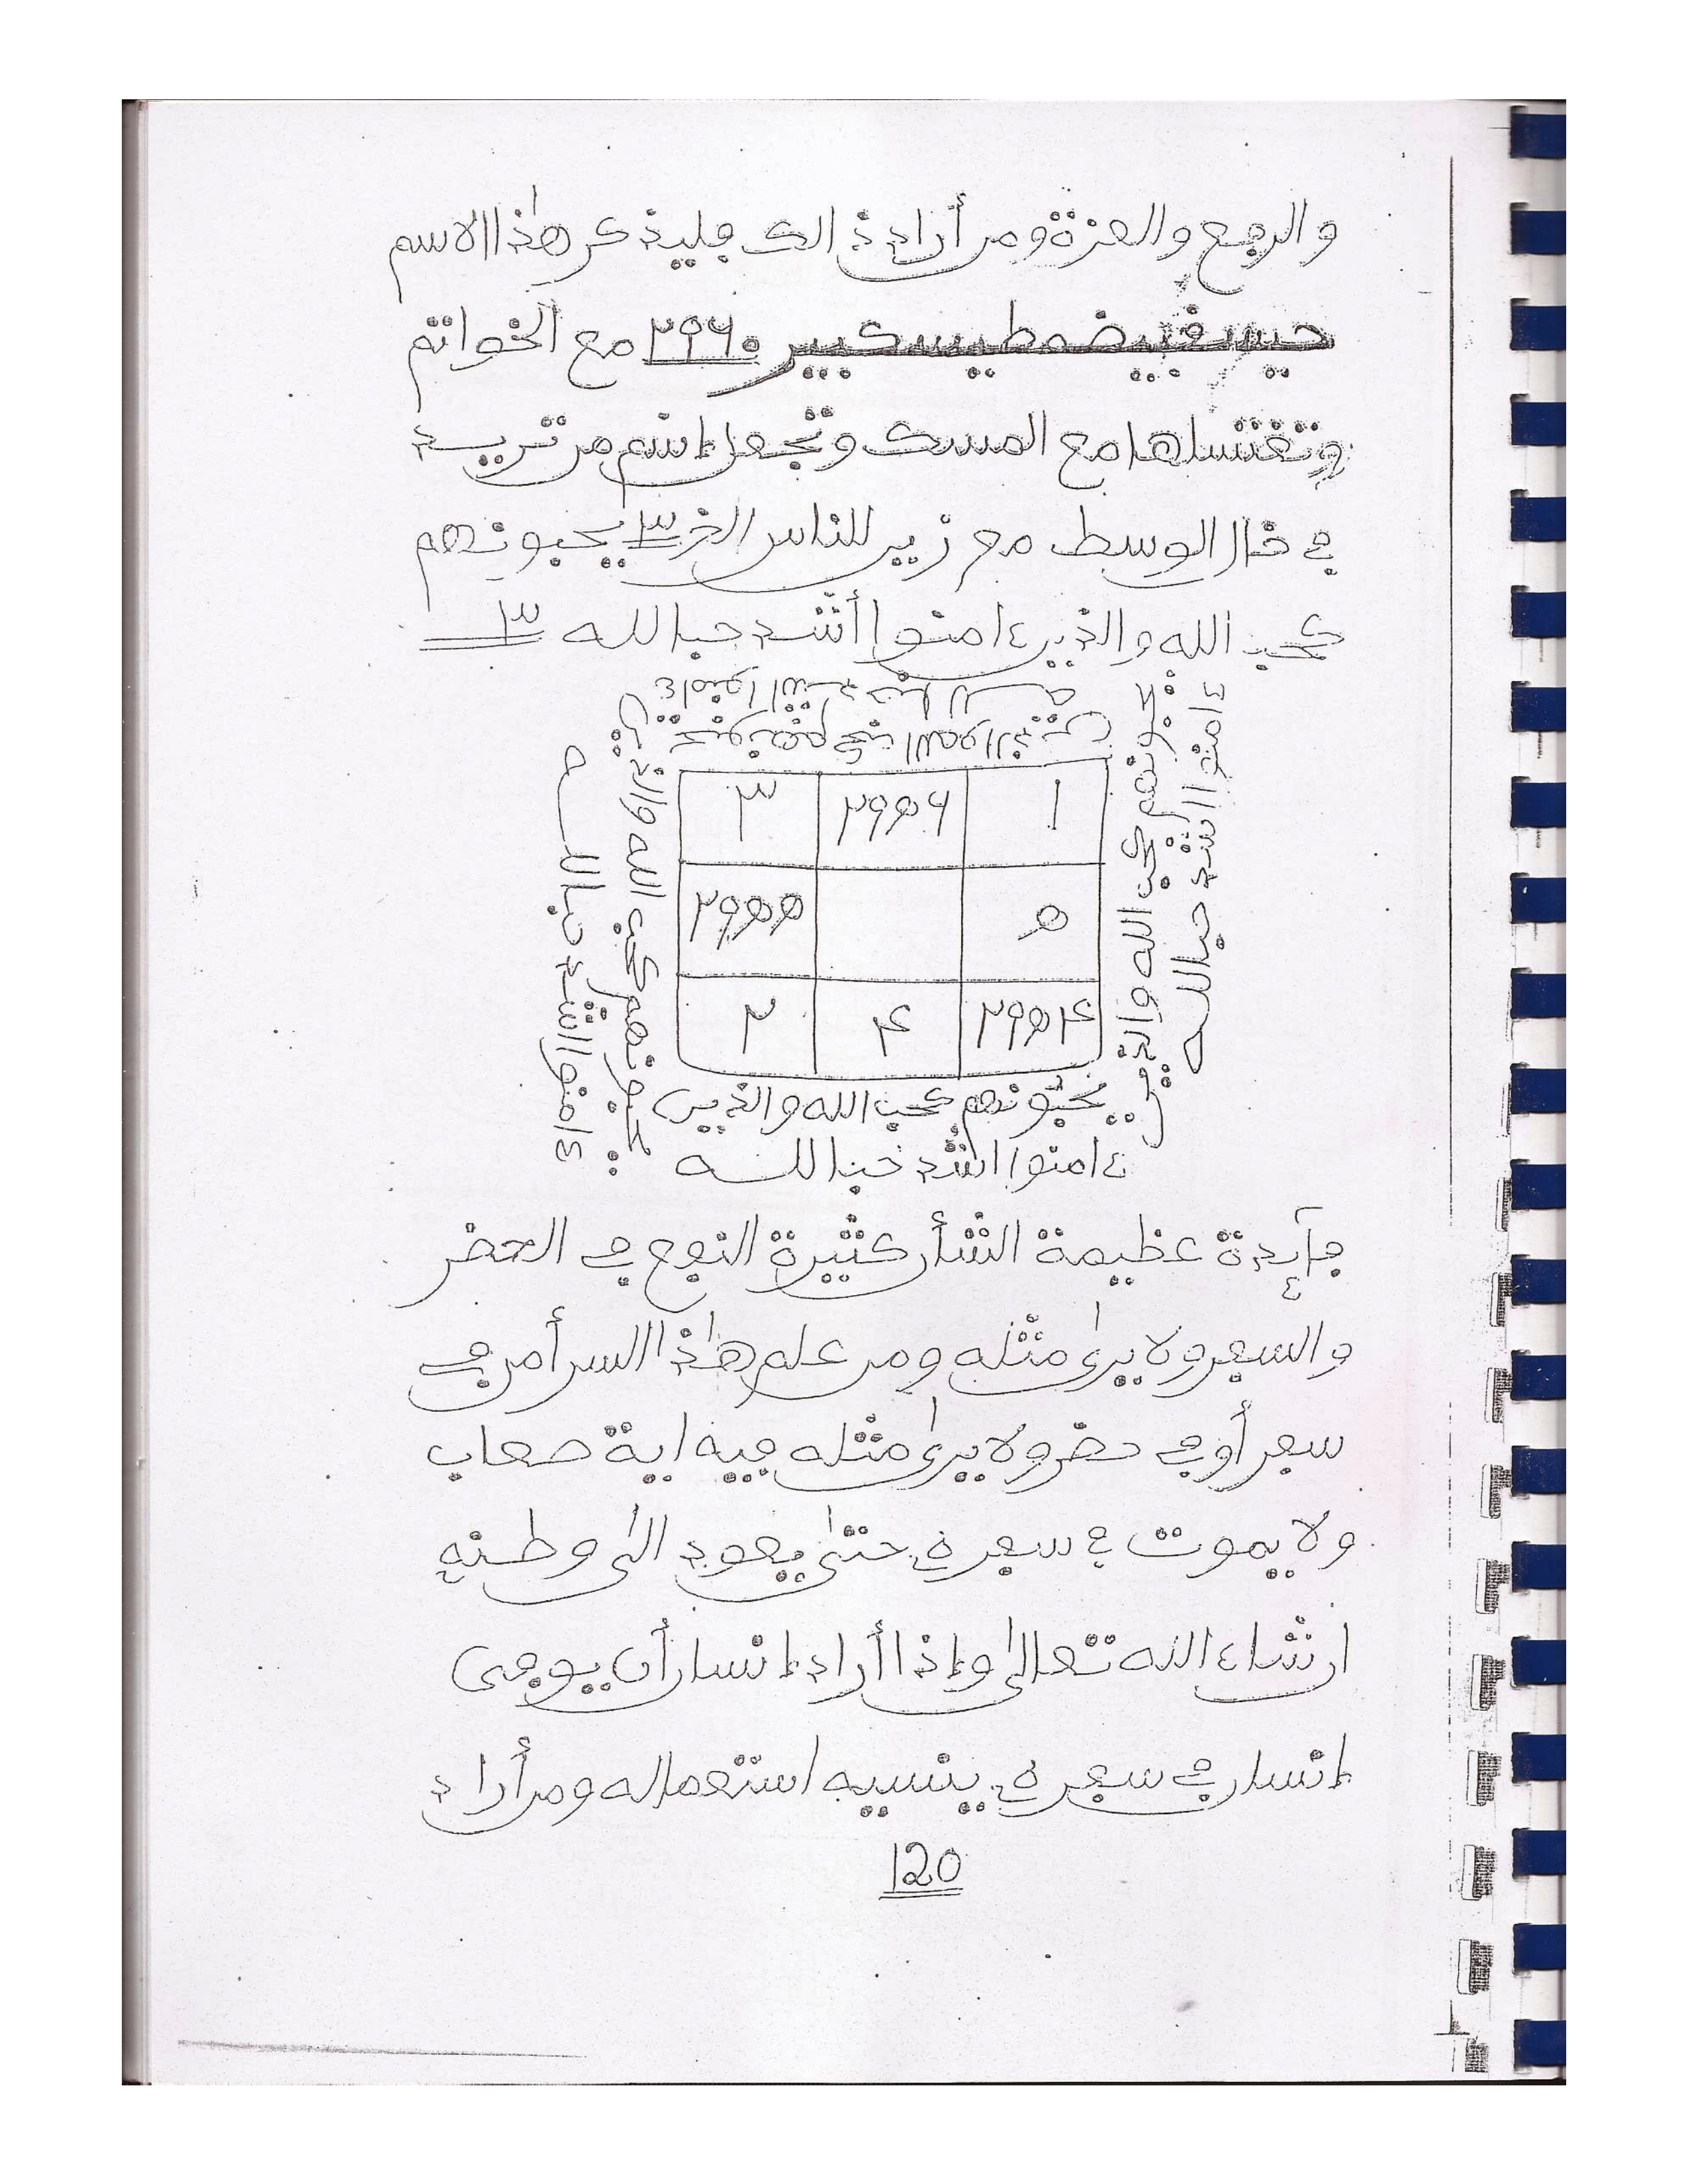 والرفع والعزة ومن أراد ذالك فليذكر هذا الاسم
٢٩٦٠ مع الخواتم
وتغتسلها مع المسك وتجعل إسم من تريد
في خال الوسط مع زين للناس الخ ٣ يحبونهم
كحب الله والذين ءامنوا أشد حبا لله ٣
ءامنوا اشد حبا لله
يحبونهم كحب الله والذين
يحبونهم كحب الله والذين
ءامنوا اشد حبا لله
يحبونهم كحب الله والذين
ءامنوا اشد حبا لله
٣ ٢٩٥٦ ١
٢٩٥٥ ٥
٢ ٤ ٢٩٥٤
يحبونهم كحب الله والذين
ءامنوا اشد حبا لله
فآئدة عظيمة الشأن كثيرة النفع في الحضر
والسفر ولا يرى مثله ومن علم هذا السر أمن في
سفر أو في حضر ولا يرى مثله فيه اية صعاب
ولا يموت في سفره حتى يعود الى وطنه
ان شاء الله تعالى وإذا أراد إنسان أن يوفى
إنسان في سفره ينسيه استعماله ومن أراد
120